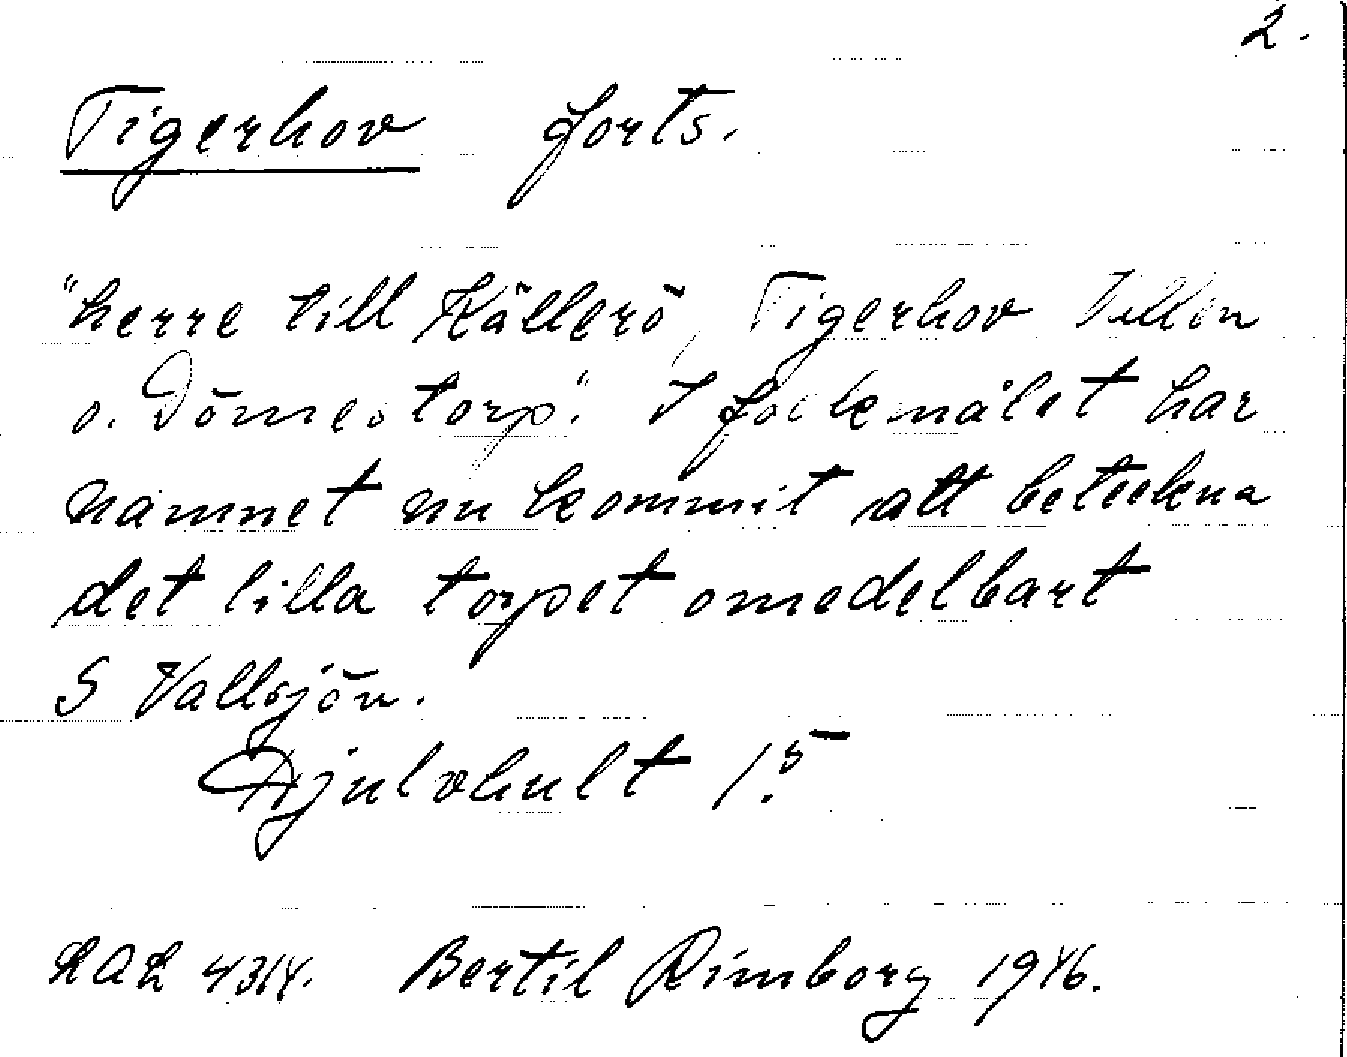 2.
Tigerhov forts.
"herre till Källerö, Tigerhov Vallen
o. Dömestorp". I folkemålet har
namnet nu kommit att beteckna
det lilla torpet omedelbart
S Vallsjön.
Djulvhult 1:5
LAL 4314. Bertil Rimborg 1946.